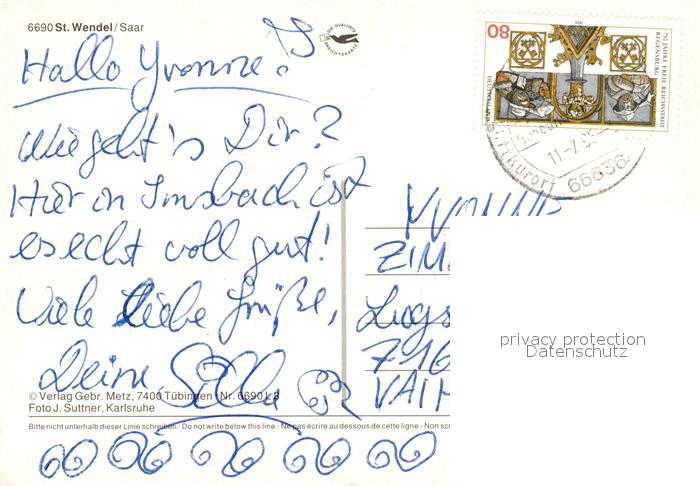 6690 St. Wendel / Saar
DIE QUALITÄTS
ANSICHTSKARTE
80
750 JAHRE FREIE REICHSSTADT
REGENSBURG
Hallo Yvonne!
Wie geht's Dir?
Hier in Imsbach ist
es echt voll gut!
Viele liebe Grüße,
Deine Silke
11.-7.95
Luftkurort 66636
YVONNE
ZIM
Lugs
716
VAIH
privacy protection
Datenschutz
© Verlag Gebr. Metz, 7400 Tübingen · Nr. 6690 L
Foto J. Suttner, Karlsruhe
Bitte nicht unterhalb dieser Linie schreiben - Do not write below this line - Ne pas écrire au dessous de cette ligne - Non scr